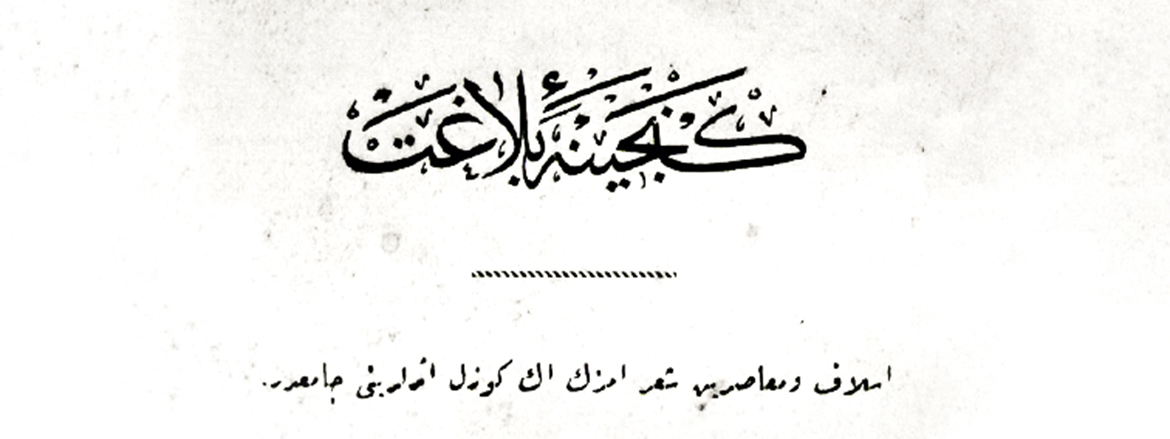 كنجينۀ بلاغت
اسلاف ومعاصرین شعرامزك اك كوزل اثرلرینی جامعدر.